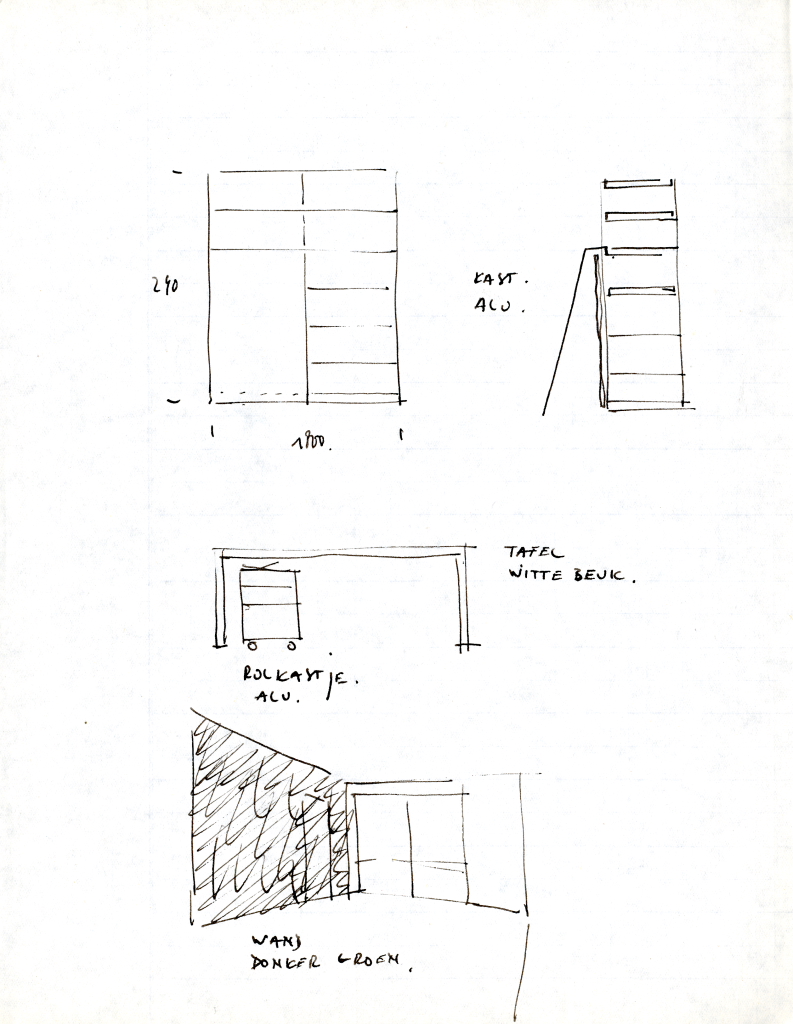 240
KAST.
ALU.
1800.
TAFEL
WITTE BEUK.
ROLKASTJE.
ALU.
WAND
DONKER GROEN.